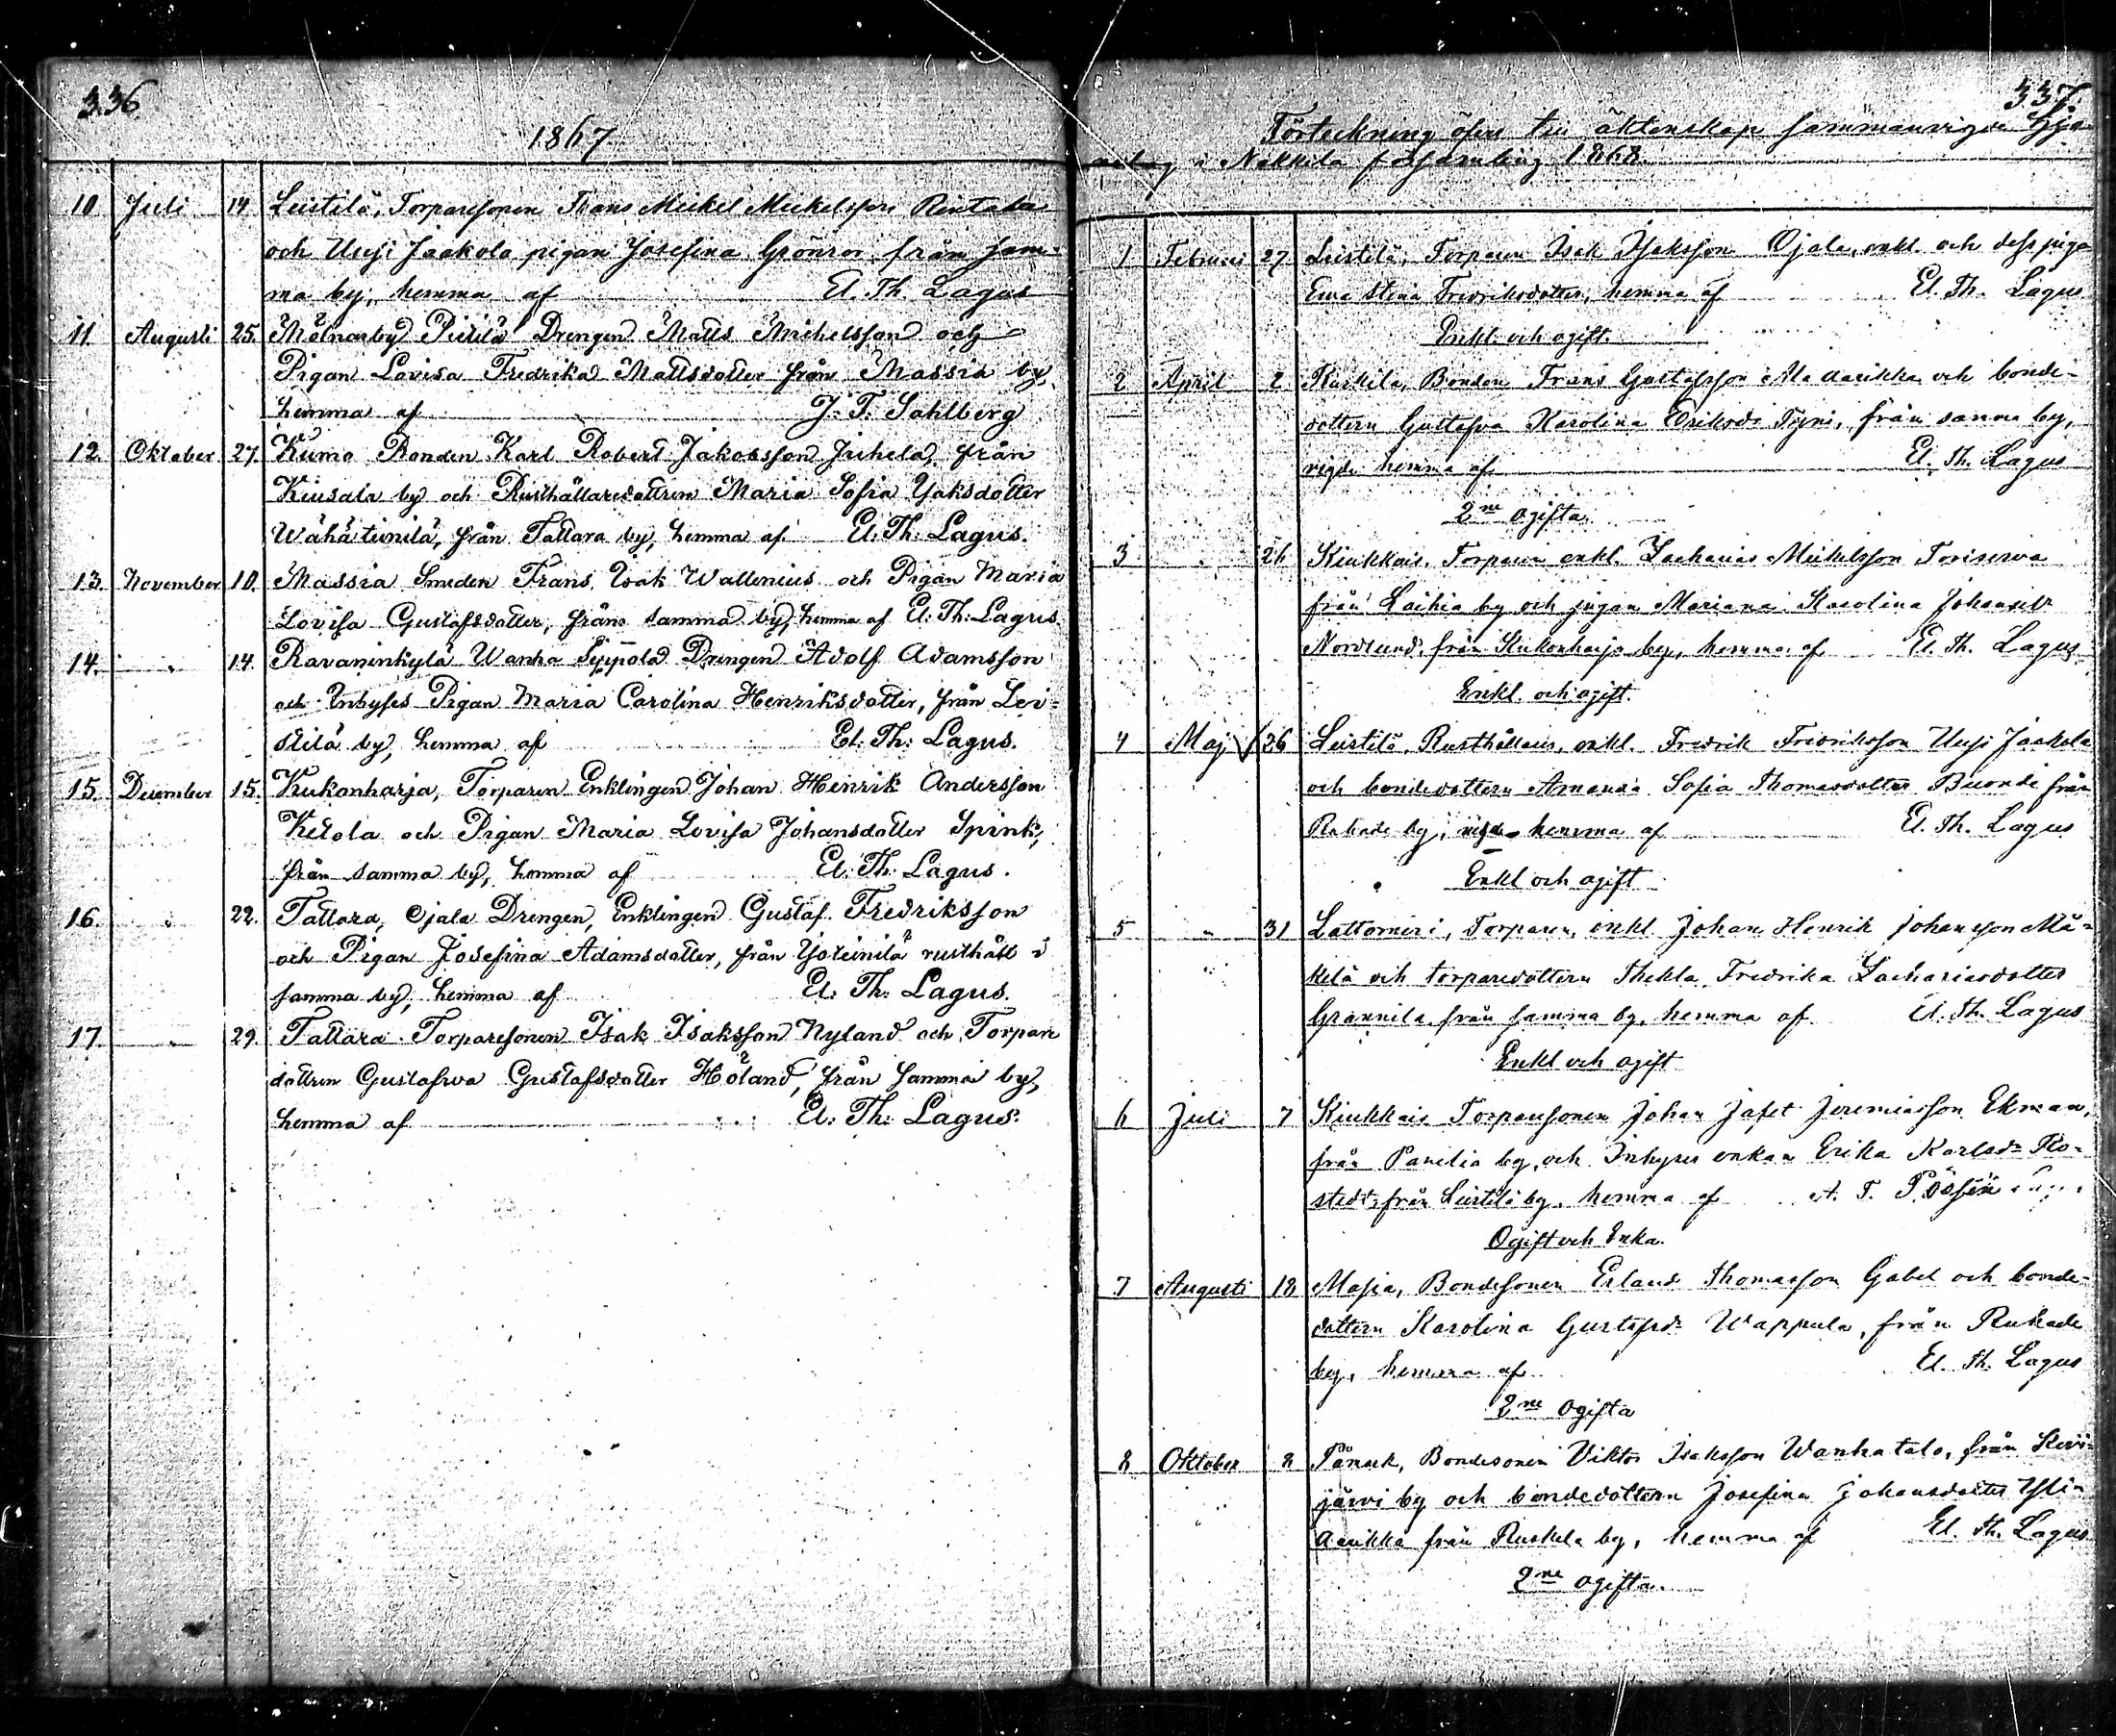 336.
1867.
10 Juli 14 Leistilä, Torparesonen Frans Mickel Mickelsson Rintala
och Uusi Jaakola pigan Josefina Grönroos från sam-
ma by, hemma af El. Th. Lagus
11 Augusti 25. Molnarby Pietilä Drengen Matts Michelsson och
Pigan Lovisa Fredrika Mattsdotter från Massia by,
hemma af J. F. Sahlberg
12. Oktober 27. Kumo Bonden Karl Robert Jakobsson Juhela, från
Kiusala by och Rusthållaredottren Maria Sofia Ysaksdotter
Wähäteinilä, från Tattara by, hemma af El. Th. Lagus.
13. November 10. Massia Smeden Frans Isak Wallenius och Pigan Maria
Lovisa Gustafsdotter, från samma by, hemma af El. Th. Lagus
14. " 14. Ravaninkylä Wanha Syppola Drengen Adolf Adamsson
och Inhyses Pigan Maria Carolina Henriksdotter, från Lei-
stilä by, hemma af El. Th. Lagus.
15. December 15. Kukonharja, Torparen Enklingen Johan Henrik Andersson
Ketola och Pigan Maria Lovisa Johansdotter Spink,
från samma by, hemma af El. Th. Lagus.
16. " 22. Tattara, Ojala Drengen, Enklingen Gustaf Fredriksson
och Pigan Josefina Adamsdotter, från Yoteinilä rusthåll i
samma by, hemma af El. Th. Lagus.
17. " 29. Tattara Torparesonen Isak Isaksson Nyland och Torpare
dottren Gustafva Gustafsdotter Höland, från samma by,
hemma af El. Th. Lagus.
337.
Förteckning öfver till äktenskap sammanvigde Hjo-
nelag i Nakkila församling 1868.
1 Februari 27 Leistilä, Torparen Isak Isaksson Ojala, enkl. och dess piga
Eva Stina Fredriksdotter, hemma af El. Th. Lagus
Enkl. och ogift.
2 April 2 Ruskila, Bonden Frans Gustafsson Ala Aarikka och bonde-
dottern Gustafva Karolina Eriksdr Tyni, från samma by,
vigde hemma af El. Th. Lagus
2ne ogifta.
3 " 26 Kiukkais, Torparen enkl. Zacharias Mickelsson Toriserva
från Laihia by och pigan Mariana Karolina Johansdr
Nordlund, från Kukonharja by, hemma af El. Th. Lagus
Enkl. och ogift.
4 Maj 26 Leistilä, Rusthållaren, enkl. Fredrik Fredriksson Uusi Jaakola
och bondedottern Amanda Sofia Thomasdotter Buondi från
Ruhade by, vigde hemma af El. Th. Lagus
Enkl och ogift
5 " 31 Lattomeri, Torparen, enkl. Johan Henrik Johansson Mä-
kelä och torparedottern Thekla Fredrika Zachariasdotter
Grannila från samma by, hemma af El. Th. Lagus
Enkl och ogift
6 Juli 7 Kiukkais Torparesonen Johan Jafet Jeremiasson Ekman,
från Panelia by, och Inhyses enkan Erika Karlsdr Ro-
stedt, från Leistilä by, hemma af A. F.
Ogift och Enka.
7 Augusti 18 Masia, Bondesonen Erland Thomasson Gabel och bonde-
dottern Karolina Gustafsdr Wappula, från Ruhade
by, hemma af El. Th. Lagus
2ne ogifta
8 Oktober 8 Påmark, Bondesonen Viktor Isaksson Wanhatalo, från Kivi-
järvi by och bondedottern Josefina Johansdotter Yli-
Aarikka från Ruskila by, hemma af El. Th. Lagus
2ne ogifta.